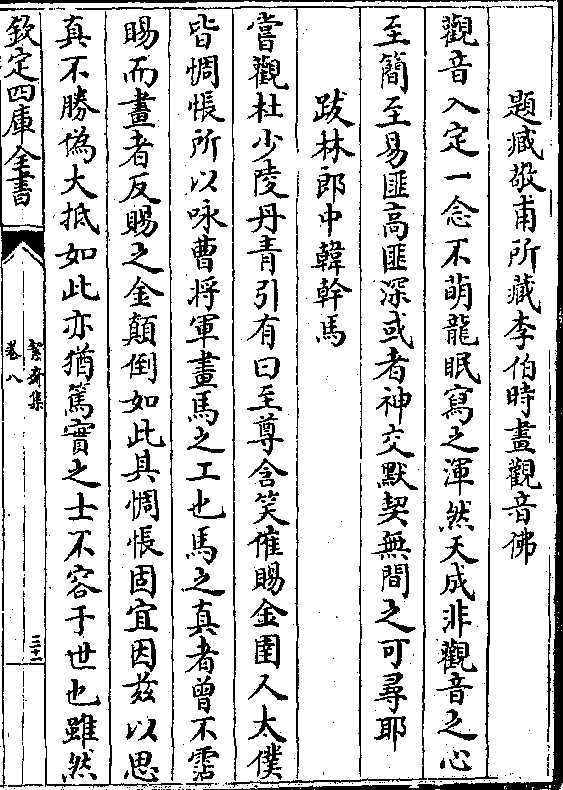 題臧敬甫所藏李伯時畫觀音佛
觀音入定一念不萌龍眠寫之渾然天成非觀音之心
至簡至易匪高匪深或者神交默契無間之可尋耶
跋林郎中韓幹馬
嘗觀杜少陵丹青引有曰至尊含笑催賜金圉人太僕
皆惆悵所以咏曹將軍畫馬之工也馬之真者曾不霑
賜而畫者反賜之金顛倒如此其惆悵固宜因兹以思
真不勝偽大抵如此亦猶篤實之士不容于世也雖然
欽定四庫全書
絜齋集
卷八
三二